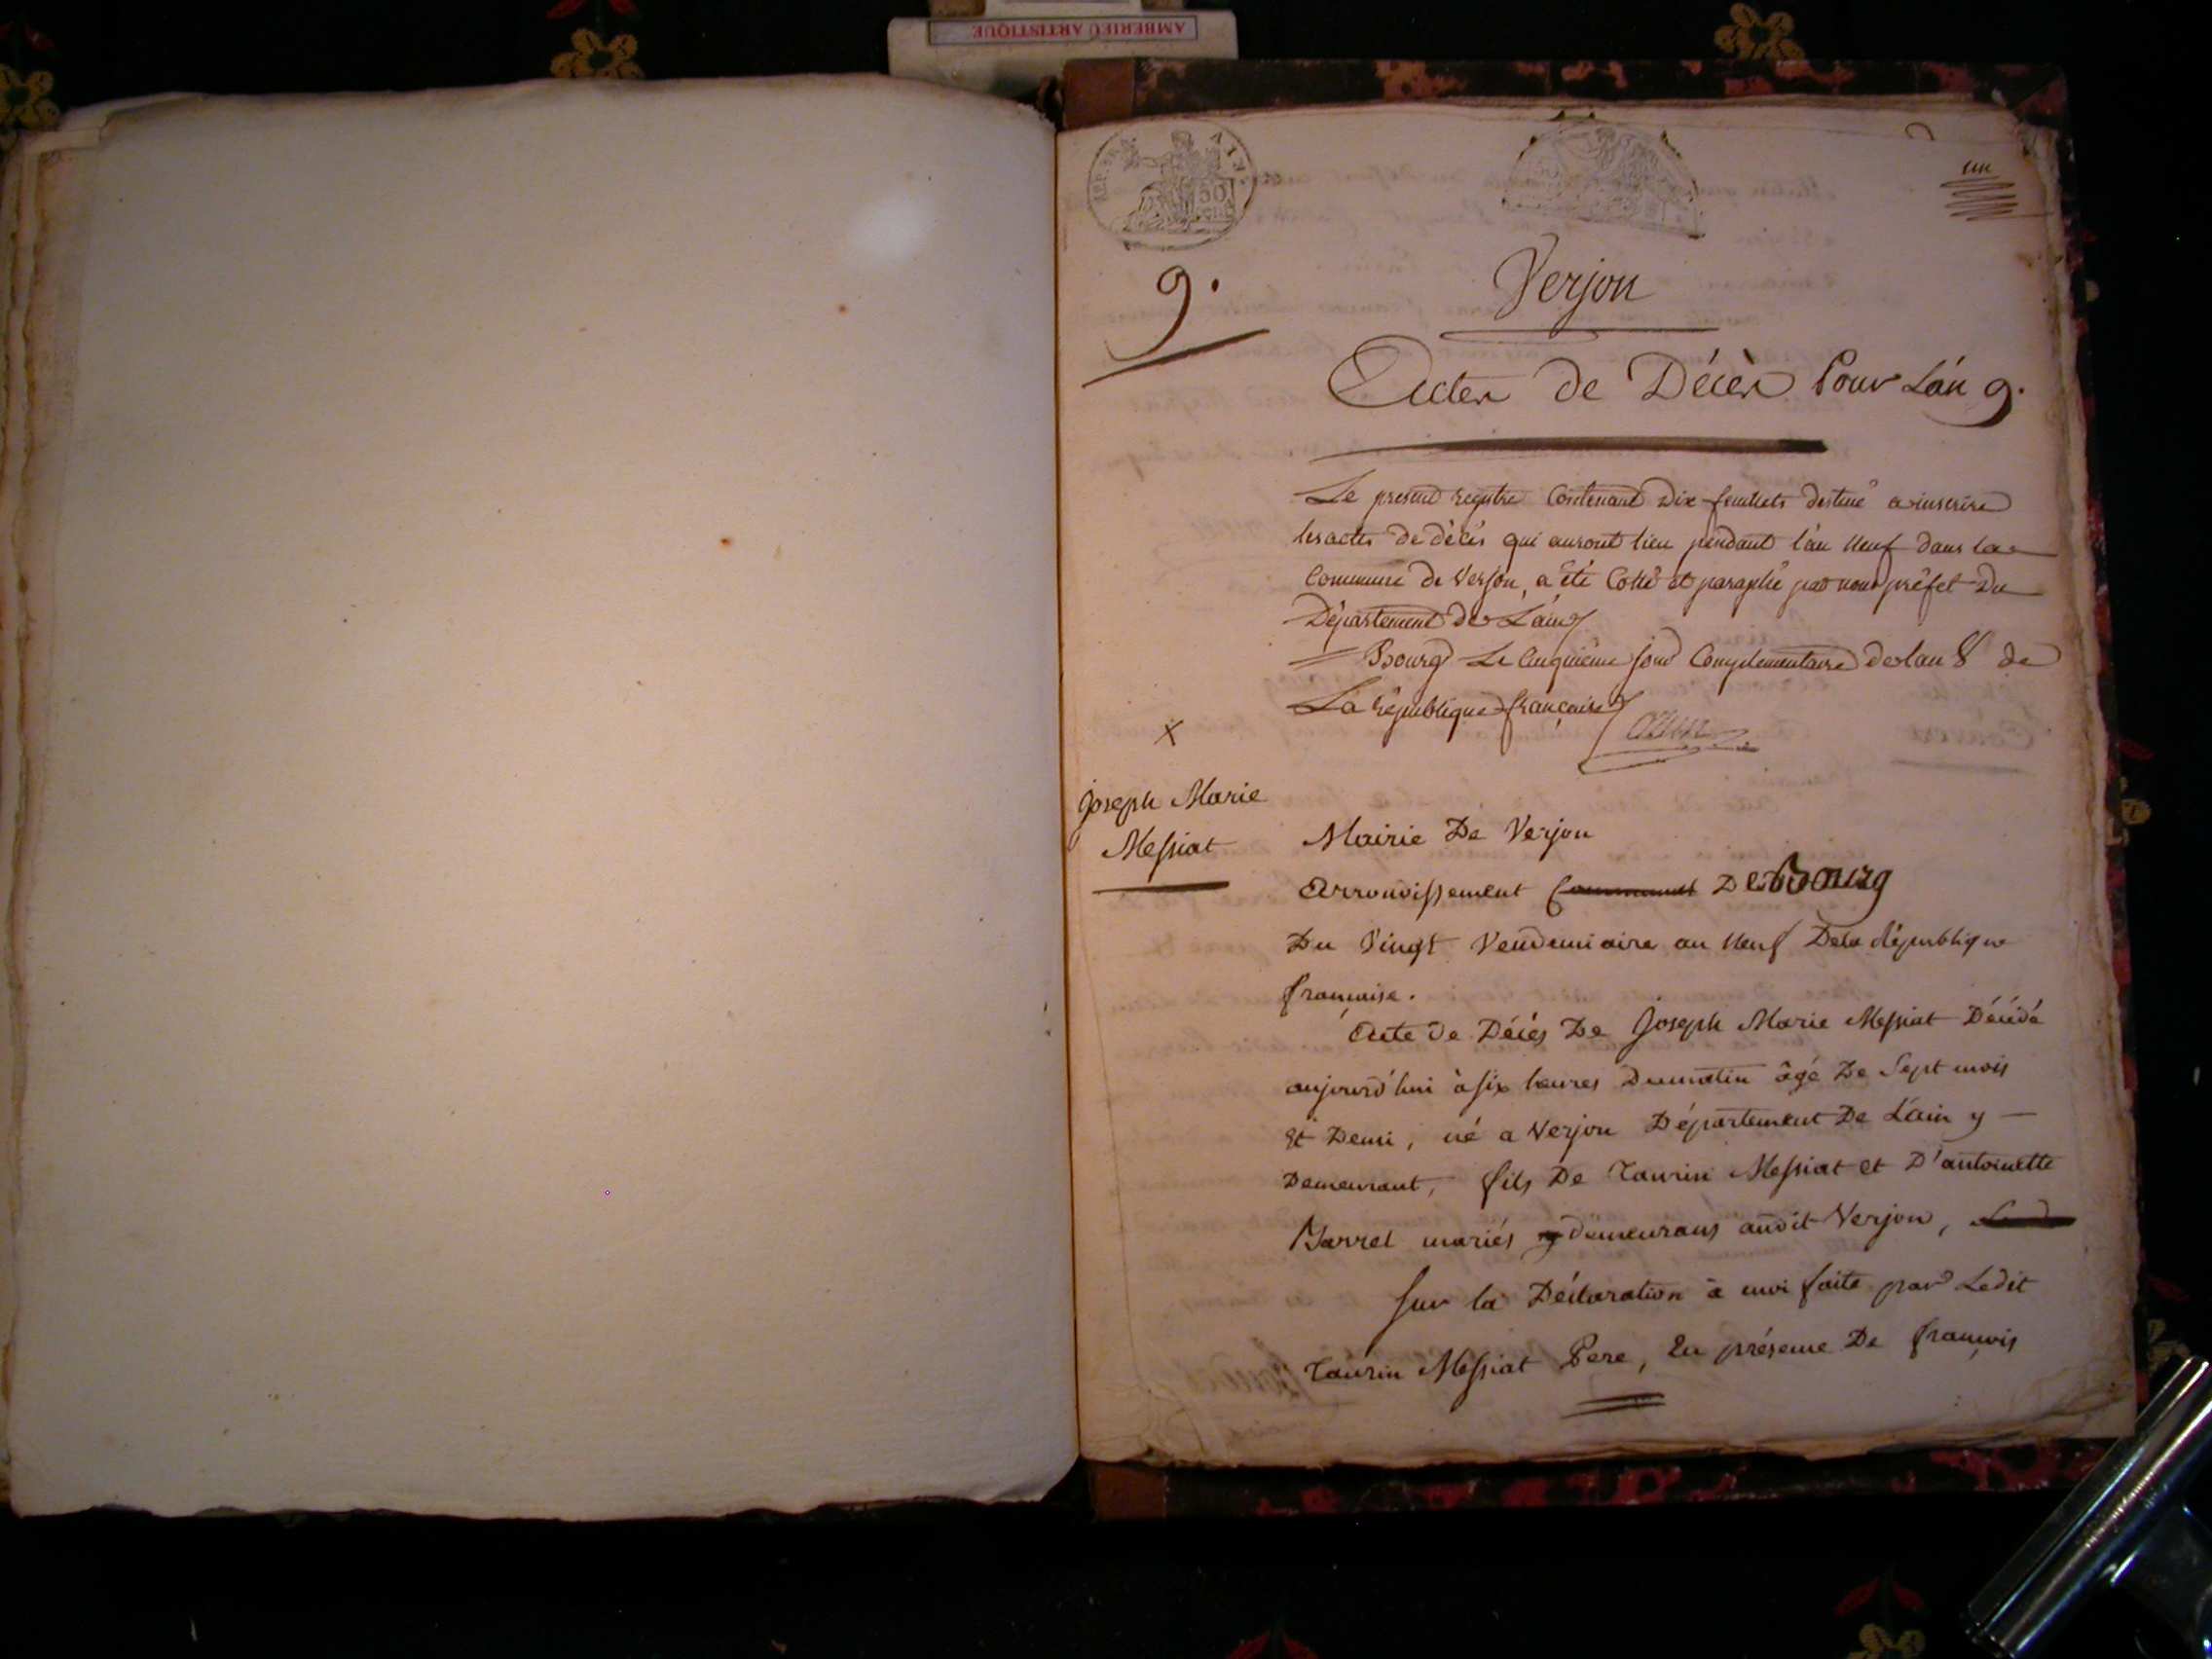 AMBERIEU ARTISTIQUE
REP. FRA.
50
CENT
un
9.
Verjon
Actes de Décès Pour L'án 9.
Le present registre Contenant Dix feuillets destiné a inscrire
les actes de décès qui auront lieu pendant l'an neuf dans la
Commune de Verjon, a été Cotté et paraphé par nous préfet Du
Département de L'ain
Bourg Le Cinquieme jour Complementaire de lan 8 de
La république française
X
Joseph Marie
Messiat
Mairie De Verjon
Arrondissement De Bourg
Du Vingt Vendemiaire an neuf De la république
française.
Acte de Décès De Joseph Marie Messiat Décédé
aujourd'hui à six heures Du matin âgé De Sept mois
Et Demi, né a Verjon Département De L'ain y
Demeurant, fils De Taurin Messiat et D'antoinette
Barrel mariés demeurans audit Verjon,
Sur la Déclaration à moi faite par Ledit
Taurin Messiat Pere, En présence De françois